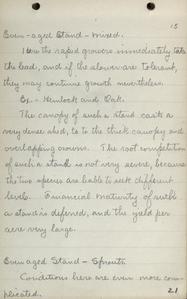 15
Even-aged Stand - mixed.
Here the rapid growers immediately take
the lead, and if the slower are tolerant,
they may continue growth nevertheless.
Ex. - Hemlock and Oak.
The canopy of such a stand casts a
very dense shad, to to the thick canopy and
overlapping crowns. The root competition
of such a stand is not very severe, because
the two species are liable to seek different
levels. Financial maturity of such
a stand is deferred, and the yield per
acre very large.
Even aged Stand - Sprouts
Conditions here are even more com-
plicated.
21